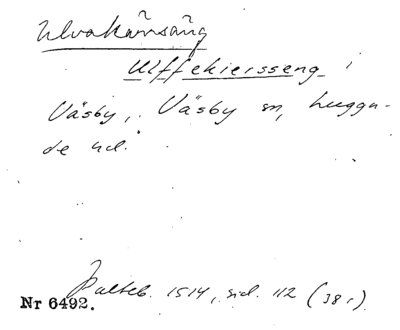 Ulvakärrsäng
Ulffekiersseng i
Väsby, Väsby sn, Luggu-
de hd.
Palteb. 1514, sid. 112 (38 r)
Nr 6492.